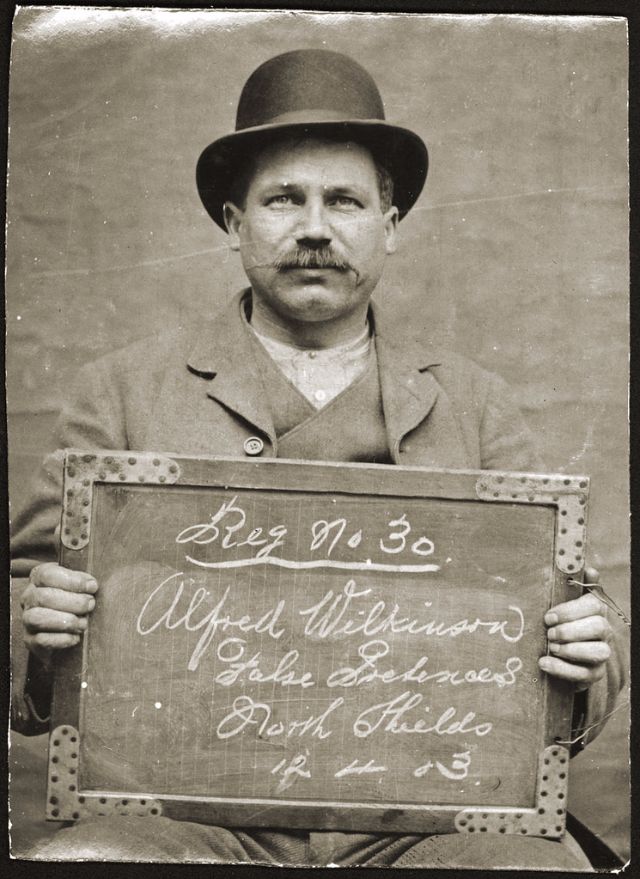 Reg No. 30.
Alfred Wilkinson
False Pretences
North Shields
4 03.